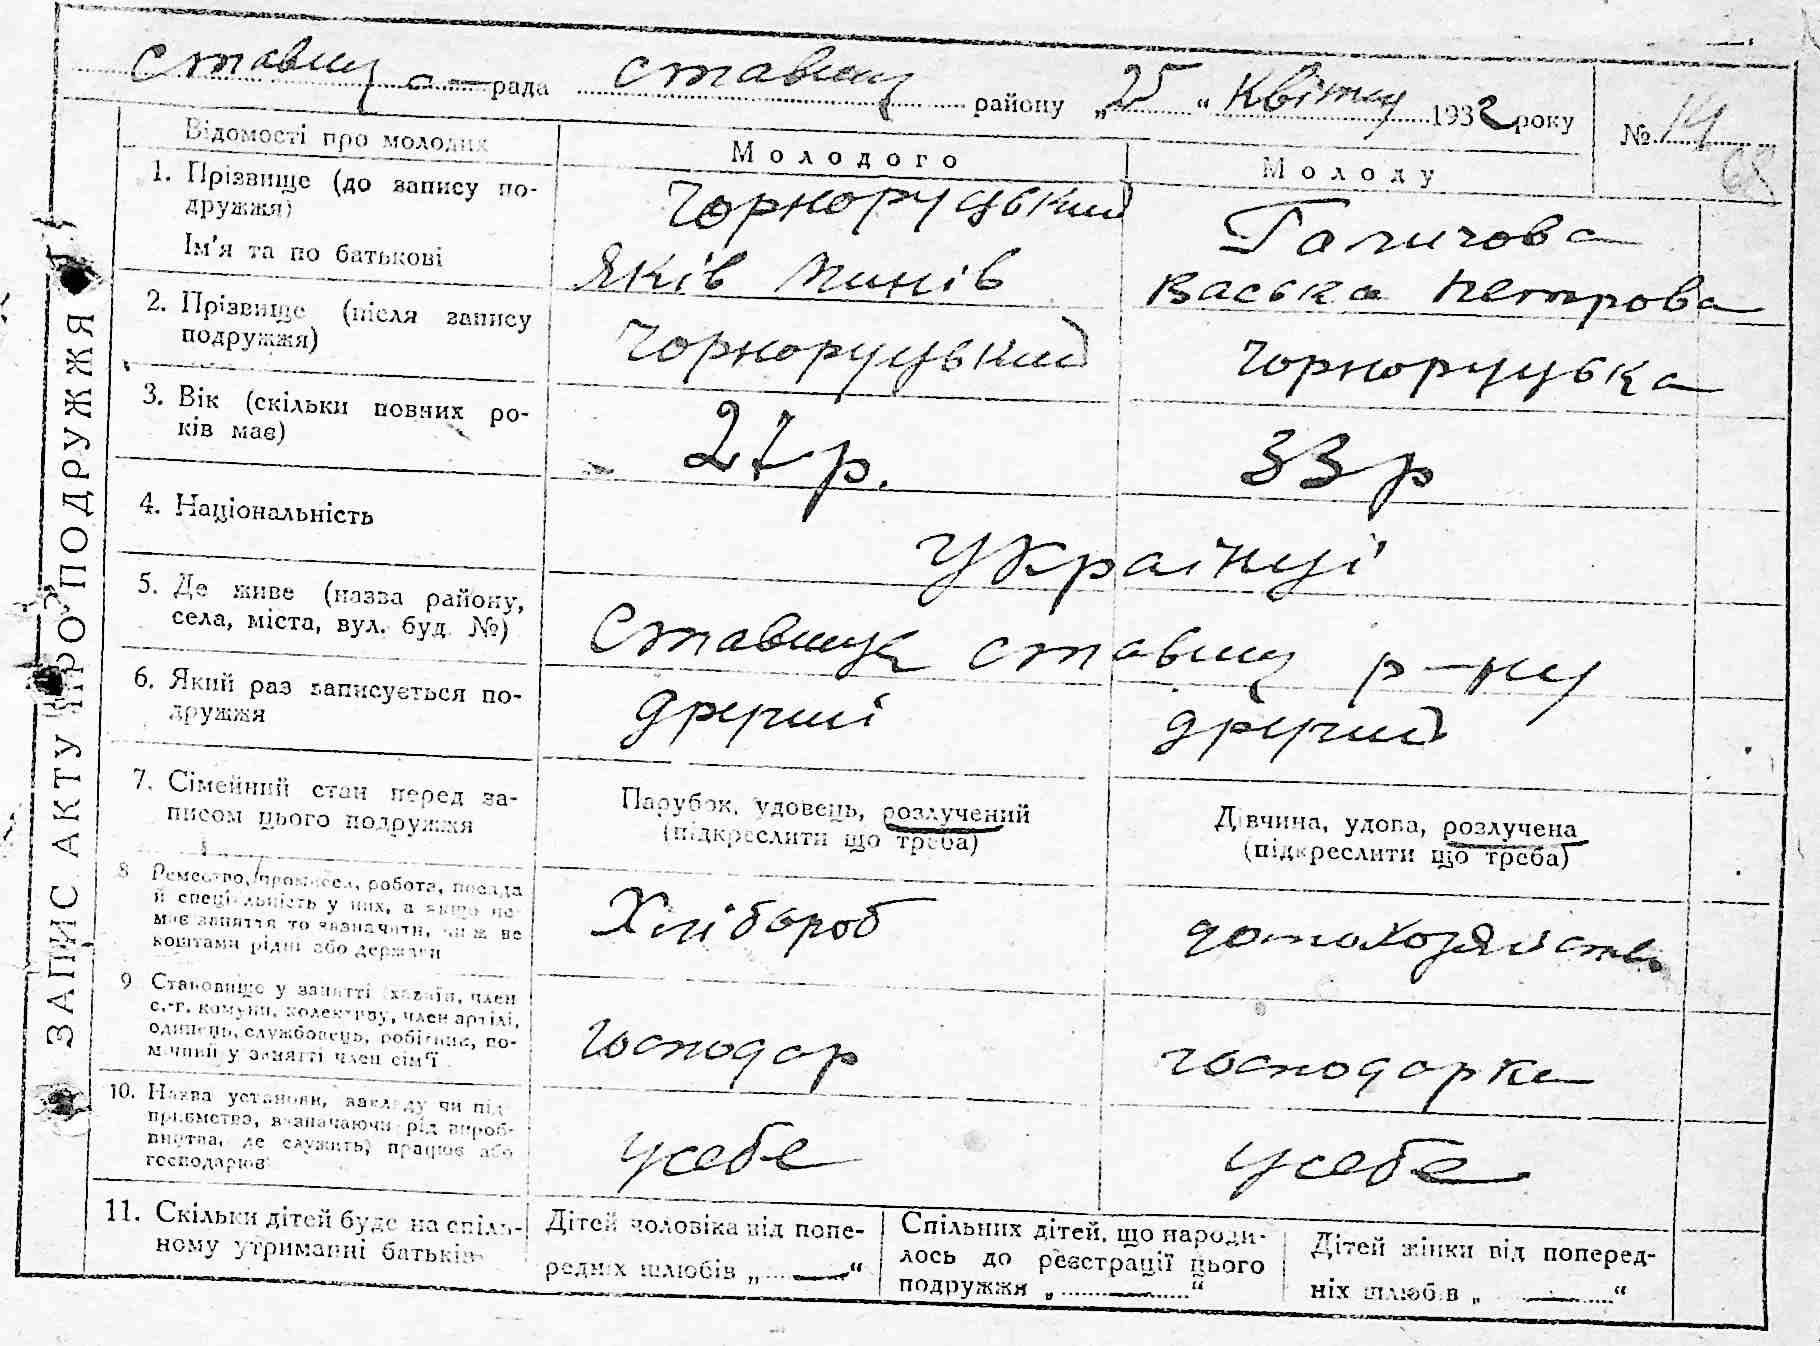 Ставищ с — рада Ставищ району „25“ Квітня 1932 року № 14
68
Відомості про молодих Молодого Молоду
1. Прізвище (до запису по-
дружжя) Чорноруцький Галичова
Ім'я та по батькові Яків Минів Васька Петрова
2. Прізвище (після запису
подружжя) Чорноруцький Чорноруцька
3. Вік (скільки повних ро-
ків має) 27 р. 33 р
4. Національність Українці
5. Де живе (назва району,
села, міста, вул. буд. №) Ставища Ставищ р-ну
6. Який раз записується по-
дружжя другий другий
7. Сімейний стан перед за-
писом цього подружжя
Парубок, удовець, розлучений
(підкреслити що треба)
Дівчина, удова, розлучена
(підкреслити що треба)
8 Ремество, промисел, робота, посада
й спеціяльність у них, а якщо не
має заняття то зазначити, чиїм
коштами рідні або держави
Хлібороб
9 Становище у занятті (хазяїн, член
с.-г. комуни, колективу, член артілі,
одинець, службовець, робітник, по-
мічний у занятті член сім'ї
господар господарка
10. Назва установи, закладу чи під-
приємства, визначаючи рід вироб-
ництва, де служить, працює або
господарює
у себе у себе
11. Скільки дітей буде на спіль-
ному утриманні батьків
Дітей чоловіка від попе-
редніх шлюбів „ — “
Спільних дітей, що народи-
лось до реєстрації цього
подружжя „ — “
Дітей жінки від поперед-
ніх шлюбів „ — “
ЗАПИС АКТУ ПРО ПОДРУЖЖЯ